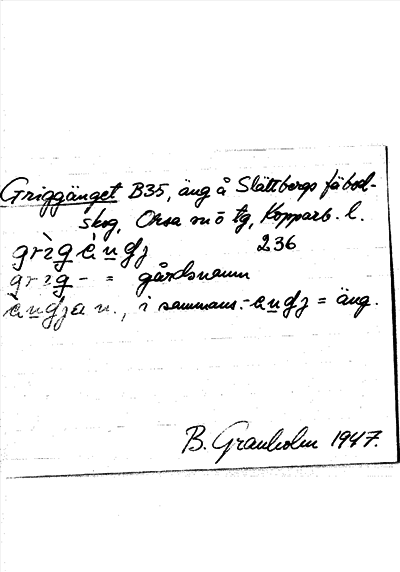 Griggänget B35, äng å Slättbergs fäbod-
skog, Orsa sn ö tg, Kopparb. l.
grìgèndʒ 236
grig- = gårdsnamn
èndʒa n., i sammans. -endʒ = äng.
B. Granholm 1947.